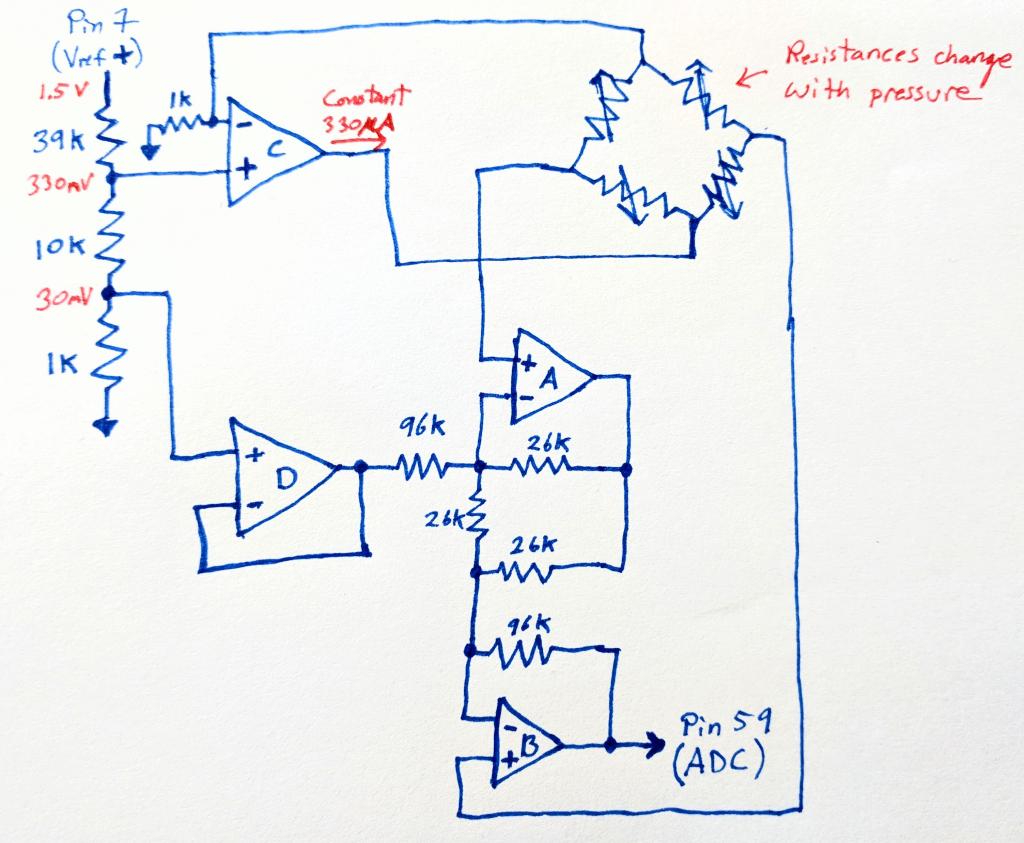 Pin 7
(Vref +)
1.5V
39K
330mV
10K
30mV
1K
1k
-
+
C
Constant
330µA
Resistances change
with pressure
+
-
D
96k
+
-
A
26k
26k
26k
96k
-
+
B
Pin 59
(ADC)